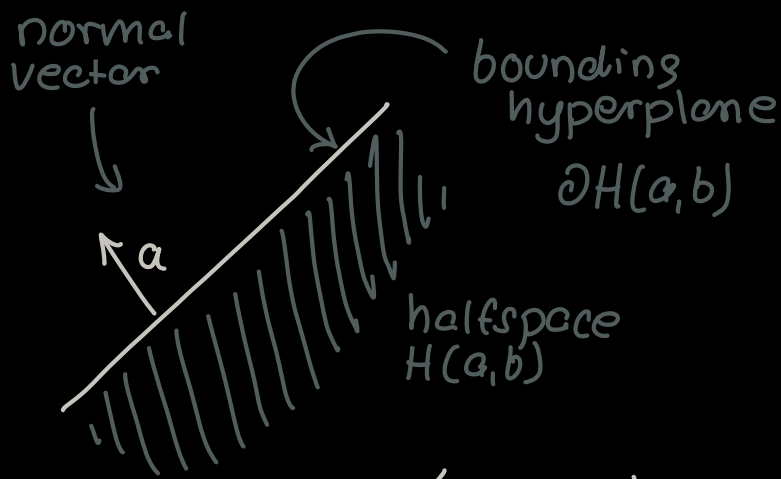 normal
vector
bounding
hyperplane
∂H(a,b)
a
halfspace
H(a,b)